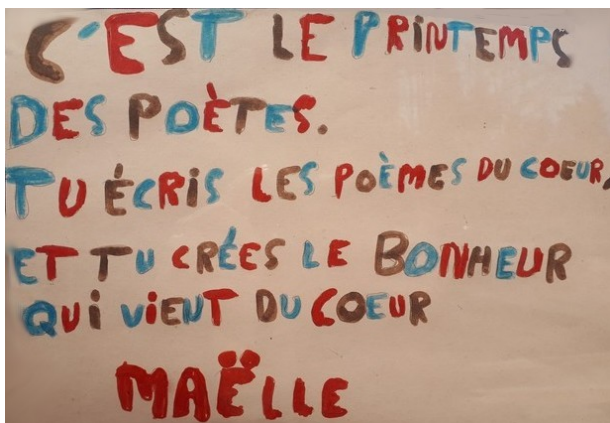 C'EST LE PRINTEMPS
DES POÈTES.
TU ÉCRIS LES POÈMES DU COEUR,
ET TU CRÉES LE BONHEUR
QUI VIENT DU COEUR
MAËLLE